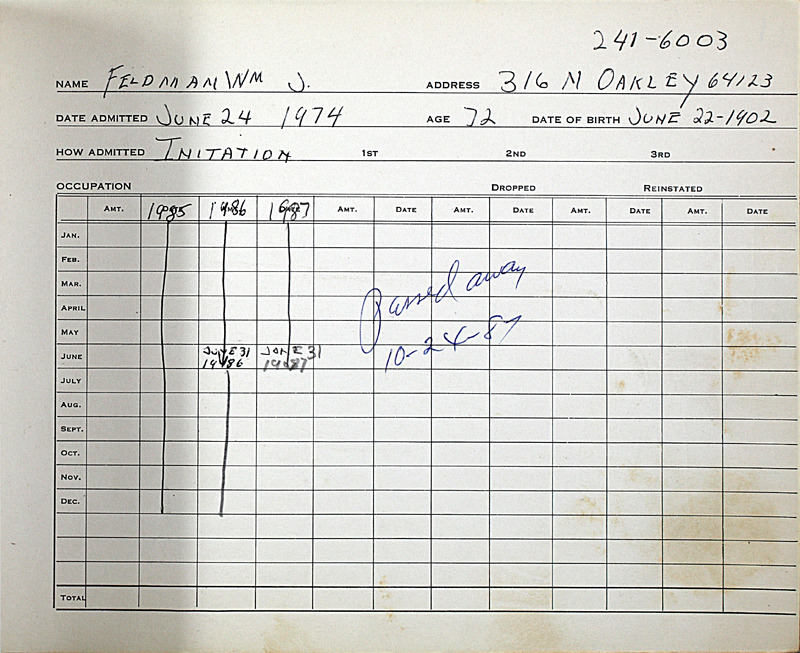 241-6003
NAME FELDMAN WM J. ADDRESS 316 N OAKLEY 64123
DATE ADMITTED JUNE 24 1974 AGE 72 DATE OF BIRTH JUNE 22-1902
HOW ADMITTED INITATION 1ST 2ND 3RD
OCCUPATION DROPPED REINSTATED
AMT. 1985 1986 1987 AMT. DATE AMT. DATE AMT. DATE AMT. DATE
JAN.
FEB.
MAR.
Passed away
APRIL
MAY
10-24-87
JUNE JUNE 31 1986 JUNE 31 1987
JULY
AUG.
SEPT.
OCT.
NOV.
DEC.
TOTAL